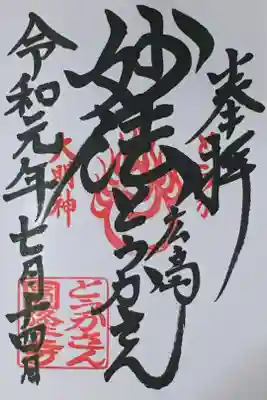 奉拝
広島
妙法とうかさん
大明神
令和元年七月二十四日
とうかさん
圓隆寺